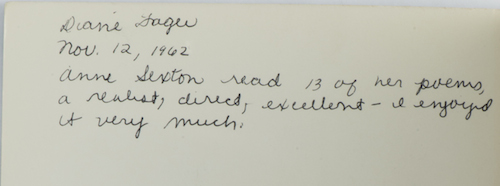 Diane Fager
Nov. 12, 1962
Anne Sexton read 13 of her poems,
a realist, direct, excellent – I enjoyed
it very much.